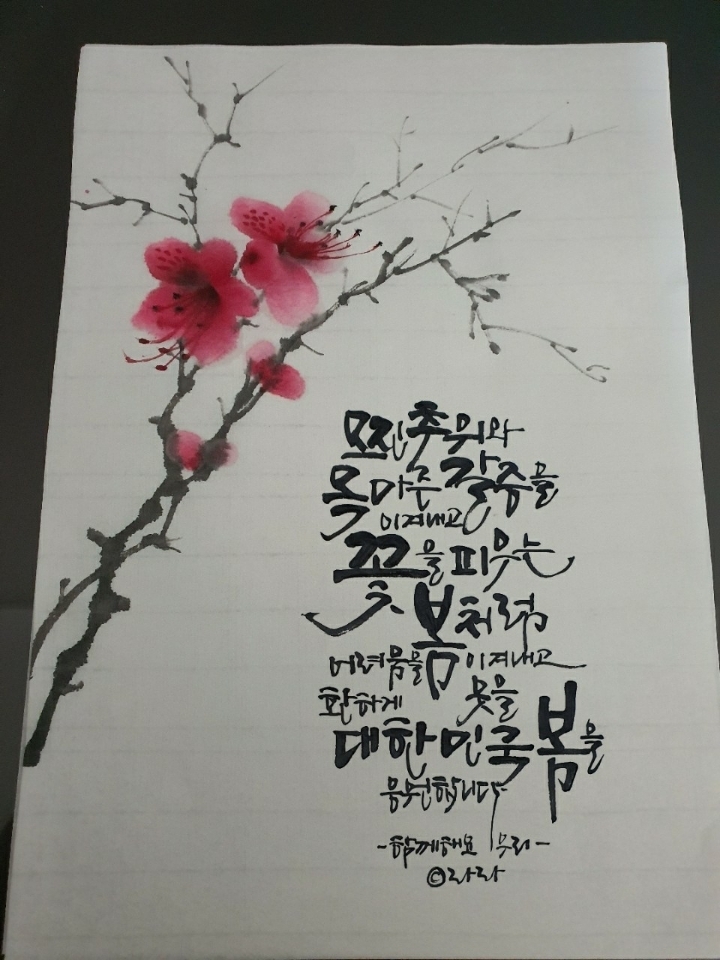 모진 추위와
목마른 갈증을
이겨내고
꽃을 피우는
봄처럼
어려움을 이겨내고
환하게 웃을
대한민국 봄을
응원합니다
-함께해요 우리-
©라라